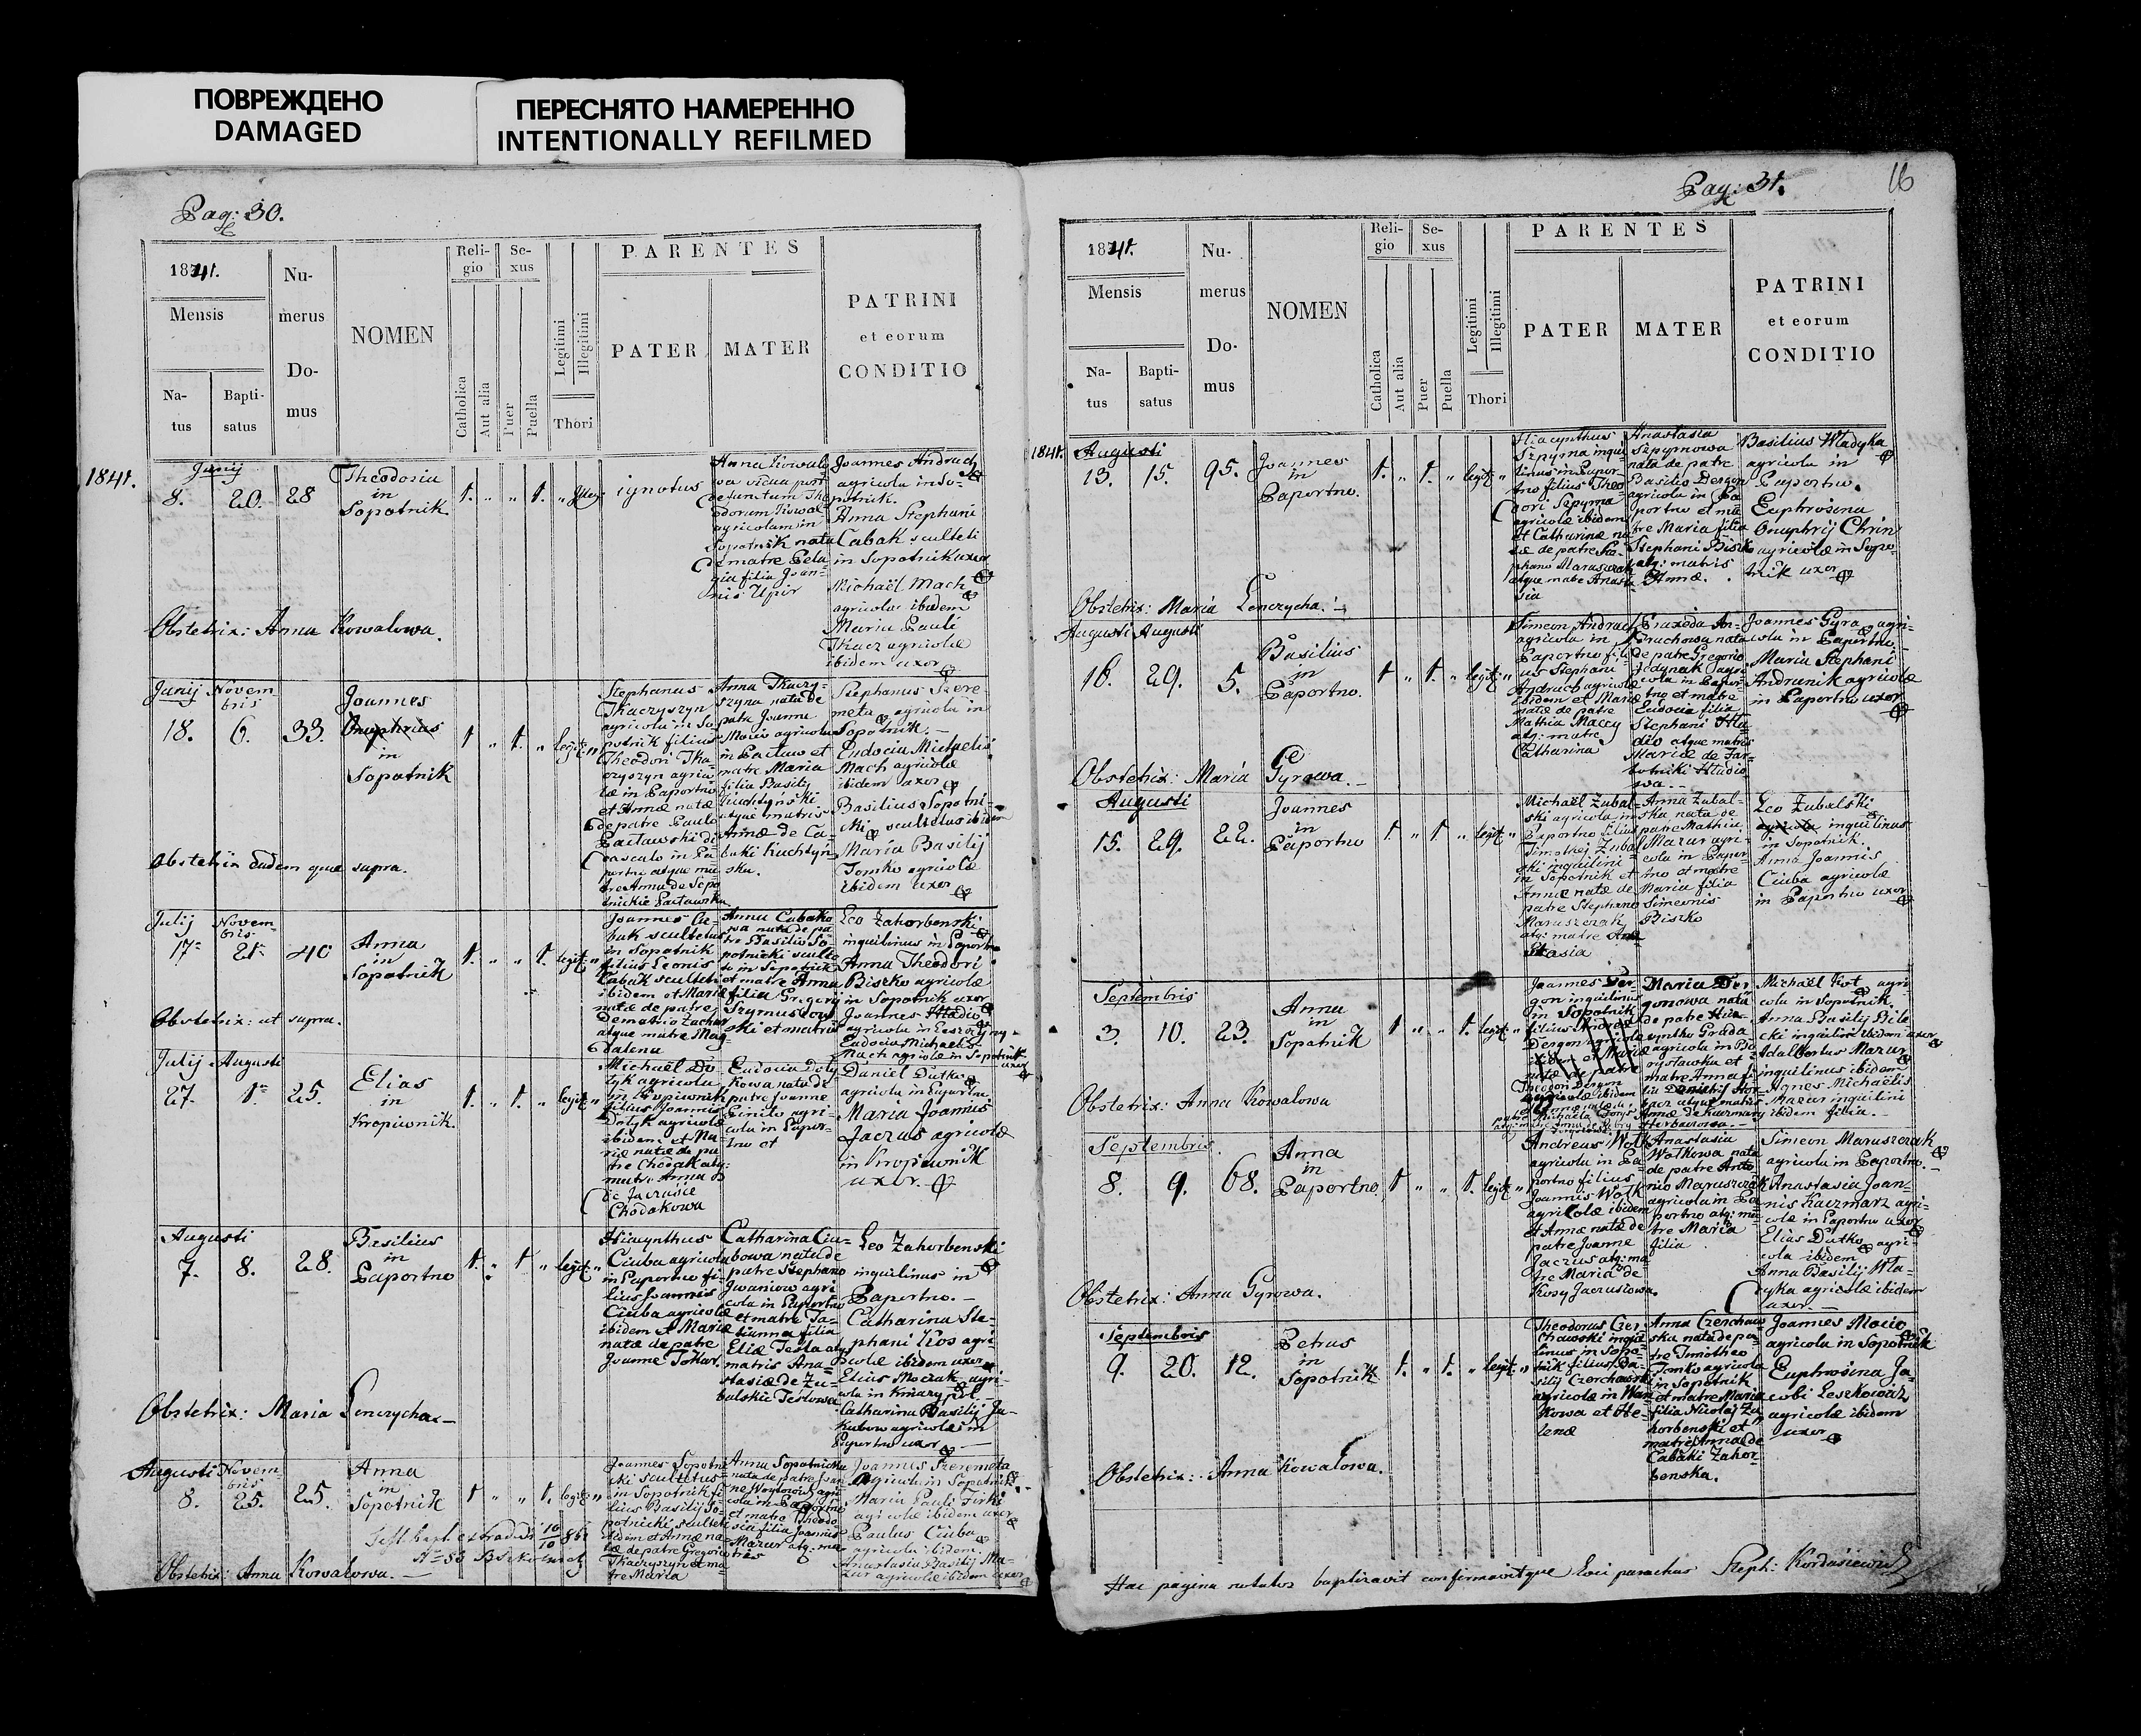 ПОВРЕЖДЕНО
DAMAGED
ПЕРЕСНЯТО НАМЕРЕННО
INTENTIONALLY REFILMED
Pag: 30.
1841.
Mensis
Na-
tus
Bapti-
satus
Nu-
merus
Do-
mus
NOMEN
Reli-
gio
Catholica
Aut alia
Se-
xus
Puer
Puella
Legitimi
Illegitimi
Thori
PARENTES
PATER
MATER
PATRINI
et eorum
CONDITIO
1841.
Junij
8. 20. 28
Theodosia
in
Sopotnik
1. " " 1. "
ignotus
Joannes Andruch
agricola in So-
potnik.
Anna Stephani
Cabak sculteti
in Sopotnik uxor
Michaël Mach
agricola ibidem
Maria Pauli
Tkacz agricolæ
ibidem uxor
Obstetrix: Anna Kowalowa.
Junij Novem
bris
18. 6. 33.
Joannes
Onuphrius
in
Sopotnik
1 " 1. " legit: "
Stephanus
Tkaczyszyn
agricola in So-
potnik filius
Theodori Tka-
czyszyn agrico
læ in Paportno
et Annæ natæ
de patre Paulo
Anna Tkaczy-
szyna nata de
patre Joanne
Mocio agricola
matre Maria
filia Basilij
atque matris
Annæ de Ca-
Stephanus Szere
meta agricola in
Sopotnik. -
Eudocia Michaelis
Mach agricolæ
ibidem uxor
Basilius Sopotni-
cki scultetus ibidem
Maria Basilij
Tomko agricolæ
ibidem uxor
Obstetrix eadem quæ supra.
Julij Novem
bris
17. 21. 40
Anna
in
Sopotnik
1. " " 1. legit: "
Joannes Ca-
bak scultetus
in Sopotnik
filius Leonis
Cabak sculteti
ibidem et Mariæ
natæ de patre
Demetrio Zachar
atque matre Mag-
dalena
Anna Cabako
wa nata de pa-
tre Basilio So-
potnicki sculte
to in Sopotnik
et matre Anna
filia Gregorij
Leo Zahorbenski
inquilinus in Paportno
Anna Theodori
Biszko agricolæ
in Sopotnik uxor
Joannes Hladio
Eudocia Michaelis
Mach agricolæ in Sopotnik
uxor
Obstetrix: ut supra.
Julij Augusti
27. 1. 25.
Elias
in
Kropiwnik.
1. " 1. " legit: "
Michaël Do-
tyk agricola
in Kropiwnik
filius Joannis
Dotyk agricolæ
ibidem et Ma-
riæ natæ de pa-
tre Chodak atq:
matre Anna
de Jacusie
Chodakowa
Eudocia Doty
kowa nata de
patre Joanne
agri-
cola in Papor-
tno et
Daniel Dutko
agricola in Paportno
Maria Joannis
Jaczus agricolæ
in Kropiwnik
uxor.
Augusti
7. 8. 28.
Basilius
in
Paportno
1. " 1 " legit: "
Hiacynthus
Ciuba agricola
in Paportno fi-
lius Joannis
Ciuba agricolæ
ibidem et Mariæ
natæ de patre
Joanne Tokar.
Catharina Ciu-
bowa nata de
patre Stephano
Iwaniow agri
cola in Paportno
et matre Ta-
tianna filia
Eliæ Tesla atq
matris Ana-
stasiæ de Zu-
balskie Teslowa
Leo Zahorbenski
inquilinus in
Paportno. -
Catharina Ste-
phani Kos agri-
colæ ibidem uxor
Elias Moczak agri-
Catharina Basilij Ja-
kubow agricolæ in
Paportno uxor
Obstetrix: Maria Lenczycha. -
Augusti Novem
bris
8. 25. 25.
Anna
in
Sopotnik
1 " " 1. legit: "
Joannes Sopotni
cki scultetus
in Sopotnik fi-
lius Basilij So-
potnicki sculteti
ibidem et Annæ na-
tæ de patre Gregorio
Tkaczyszyn et ma-
tre Maria
Anna Sopotnicka
nata de patre Joan
cola in Paportno
et matre Theodo
sia filia Joannis
Mazur atq: ma-
tris
Joannes Szeremeta
agricola in Sopotnik
Maria Pauli Firki
agricolæ ibidem uxor
Paulus Ciuba
agricola ibidem.
Anastasia Basilij Ma-
zur agricolæ ibidem uxor
Obstetrix: Anna Kowalowa. -
Pag: 31.
16
1841.
Mensis
Na-
tus
Bapti-
satus
Nu-
merus
Do-
mus
NOMEN
Reli-
gio
Catholica
Aut alia
Se-
xus
Puer
Puella
Legitimi
Illegitimi
Thori
PARENTES
PATER
MATER
PATRINI
et eorum
CONDITIO
1841.
Augusti
13. 15. 95.
Joannes
in
Paportno.
1. " 1. " legit: "
Hiacynthus
Szpyrna inqui
linus in Papor-
tno filius Theo
dori Szpyrna
agricolæ ibidem
et Catharinæ na
tæ de patre Ste-
phano Maruszczak
atque matre Anasta
sia
Anastasia
Szpyrnowa
nata de patre
Basilio Dergon
agricola in Pa
portno et ma
tre Maria filia
Stephani Biszko
atq: matris
Annæ.
Basilius Wladyka
agricola in
Paportno.
Euphrosina
Onuphrij Chrin
agricolæ in Sopo-
tnik uxor
Obstetrix: Maria Lenczycha. -
Augusti Augusti
18. 29. 5.
Basilius
in
Paportno.
1 " 1. " legit: "
Simeon Andruch
agricola in
Paportno fili
us Stephani
Andruch agricolæ
ibidem et Mariæ
natæ de patre
Mathia Maccy
atq: matre
Catharina
Praxeda An-
druchowa nata
de patre Gregorio
Jedynak agri-
cola in Papor-
tno et matre
Eudocia filia
Stephani Hla
dio atque matris
Mariæ de
Hladio
wa. -
Joannes Gyra agri-
cola in Paportno.
Maria Stephani
Andrunik agricolæ
in Paportno uxor
Obstetrix: Maria Gyrowa. -
Augusti
15. 29. 22.
Joannes
in
Paportno
1. " 1 " legit: "
Michaël Zubal-
ski agricola in
Paportno filius
Timothej Zubal
ski inquilini
in Sopotnik et
Annæ natæ de
patre Stephano
Maruszczak
atq: matre Ana
stasia
Anna Zubal-
ska nata de
patre Mathia
Mazur agri-
cola in Papor-
tno et matre
Maria filia
Simeonis
Biszko
Leo Zubalski
agricola inquilinus
in Sopotnik.
Anna Joannis
Ciuba agricolæ
in Paportno uxor
Septembris
3. 10. 23.
Anna
in
Sopotnik
1 " " 1. legit: "
Joannes Der-
gon inquilinus
in Sopotnik
filius Andreæ
Dergon agricolæ
ibidem et Mariæ
natæ de patre
Theodori Dergon
agricolæ ibidem
Maria Der
gonowa nata
de patre Hia-
cyntho Grada
agricola in Bo
ryslawka et
matre Anna fi-
lia
Michaël Kot agri-
cola in Sopotnik.
Anna Basilij Bile
cki inquilini ibidem uxor
Adalbertus Mazur
inquilinus ibidem
Agnes Michaëlis
Mazur inquilini
ibidem filia. -
Obstetrix: Anna Kowalowa
Septembris.
8. 9. 68.
Anna
in
Paportno.
1 " " 1. legit: "
Andreas Wolk
agricola in Pa-
portno filius
Joannis Wolk
agricolæ ibidem
et Annæ natæ de
patre Joanne
Jaczus atq: ma
tre Maria de
Kosy Jaczusiowa.
Anastasia
Wolkowa nata
de patre Anto
nio Maruszczak
agricola in Pa
portno atq: ma
tre Maria
filia
Simeon Maruszczak
agricola in Paportno. -
Anastasia Joan-
nis Kaczmarz agri-
colæ in Paportno uxor
Elias Dutko agri-
cola ibidem
Anna Basilij Wla-
dyka agricolæ ibidem
uxor. -
Obstetrix: Anna Gyrowa.
Septembris
9. 20. 12.
Petrus
in
Sopotnik
1. " 1. " legit: "
Theodorus Czer-
chawski inqui
linus in Sopo-
tnik filius Ba-
silij Czerchawski
agricolæ in Wan
kowa et He-
lenæ
Anna Czerchaw
ska nata de pa-
tre Timotheo
Tomko agricola
in Sopotnik
et matre Maria
filia Nicolaj Za
horbenski et
matre Anna de
Cabaki Zahor-
benska.
Joannes Mocio
agricola in Sopotnik
Euphrosina Ja-
cobi Leszkowicz
agricolæ ibidem
uxor
Obstetrix: Anna Kowalowa.
Hac pagina notatos baptizavit confirmavitque loci parochus Steph: Kordasiewicz